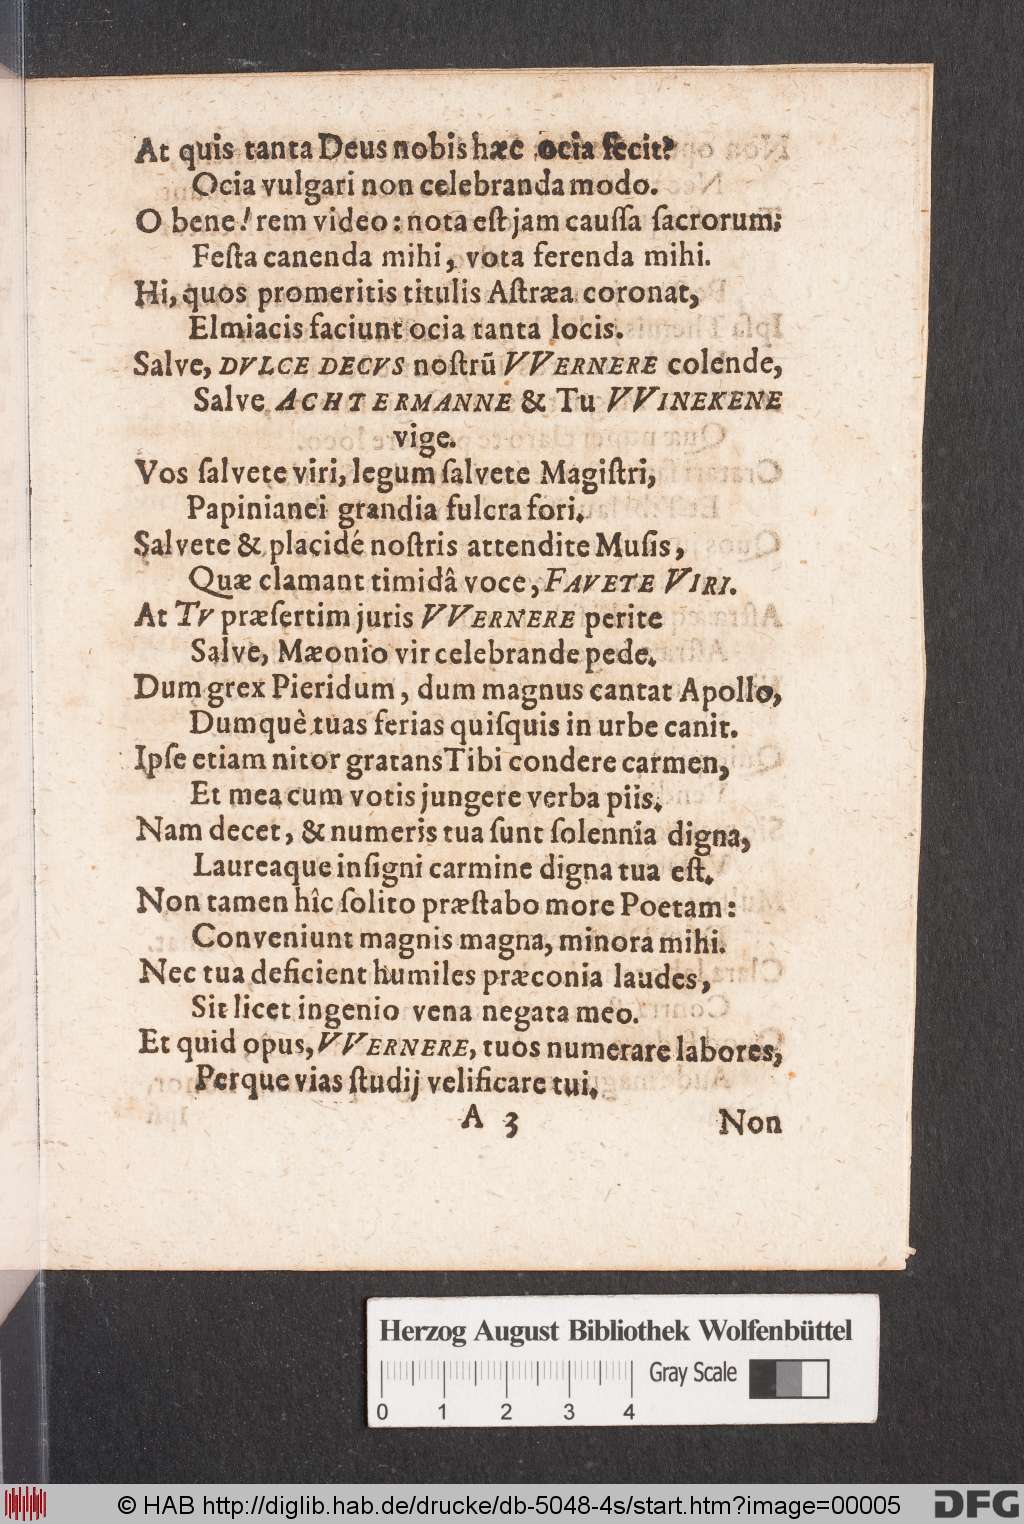 At quis tanta Deus nobis hæc ocia fecit?
Ocia vulgari non celebranda modo.
O bene! rem video: nota eſt jam cauſſa ſacrorum;
Feſta canenda mihi, vota ferenda mihi.
Hi, quos promeritis titulis Aſtræa coronat,
Elmiacis faciunt ocia tanta locis.
Salve, DVLCE DECVS noſtrū VVERNERE colende,
Salve ACHTERMANNE & Tu VVINEKENE
vige.
Vos ſalvete viri, legum ſalvete Magiſtri,
Papinianei grandia fulcra fori.
Salvete & placidé noſtris attendite Muſis,
Quæ clamant timidâ voce, FAVETE VIRI.
At TV præſertim juris VVERNERE perite
Salve, Mæonio vir celebrande pede.
Dum grex Pieridum, dum magnus cantat Apollo,
Dumquè tuas ferias quiſquis in urbe canit.
Ipſe etiam nitor gratans Tibi condere carmen,
Et mea cum votis jungere verba piis.
Nam decet, & numeris tua ſunt ſolennia digna,
Laureaque inſigni carmine digna tua eſt.
Non tamen hîc ſolito præſtabo more Poetam:
Conveniunt magnis magna, minora mihi.
Nec tua deficient humiles præconia laudes,
Sit licet ingenio vena negata meo.
Et quid opus, VVERNERE, tuos numerare labores,
Perque vias ſtudij velificare tui.
A 3 Non
Herzog August Bibliothek Wolfenbüttel
Gray Scale
0 1 2 3 4
© HAB http://diglib.hab.de/drucke/db-5048-4s/start.htm?image=00005
DFG